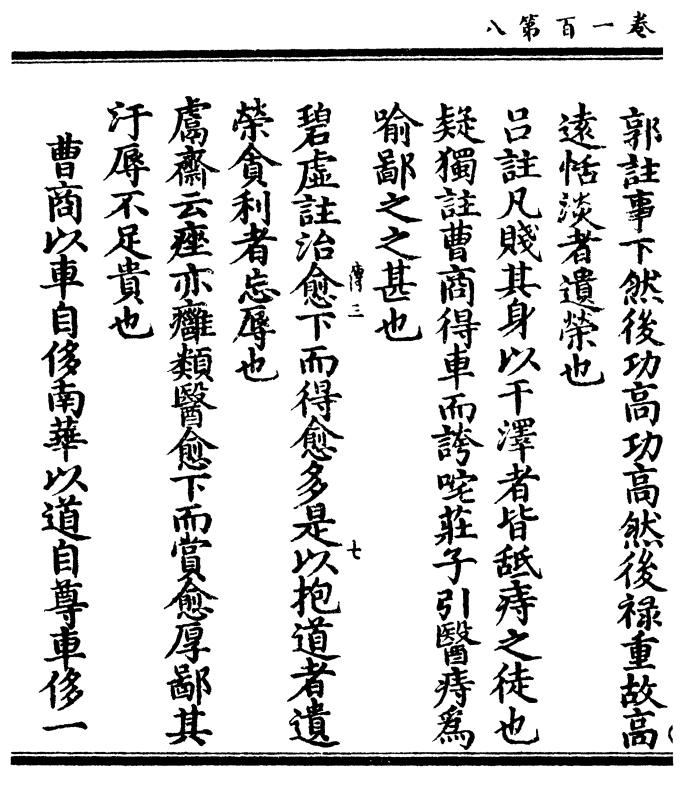 卷一百第八
郭註事下然後功高功高然後祿重故高
遠恬淡者遺榮也
吕註凡賤其身以干澤者皆舐痔之徒也
疑獨註曹商得車而誇咤莊子引醫痔爲
喻鄙之之甚也
碧虛註治愈下而得愈多是以抱道者遺
榮貪利者忘辱也
傳三
七
鬳齋云痤亦癰類醫愈下而賞愈厚鄙其
汙辱不足貴也
曹商以車自侈南華以道自尊車侈一